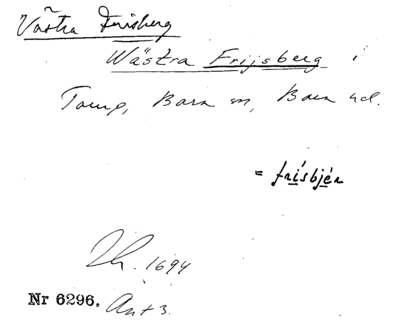 Västra Frisberg
Wästra Frijsberg i
Torup, Bara sn, Bara hd.
= frísbjér
Jb. 1694
Nr 6296. Ant 3.